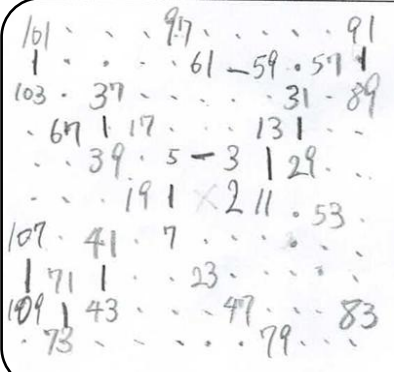 101 97 91
61 59 57
103 37 31 89
67 17 13
39 5 3 29
19 2 11 53
107 41 7
71 23
109 43 47 83
73 79